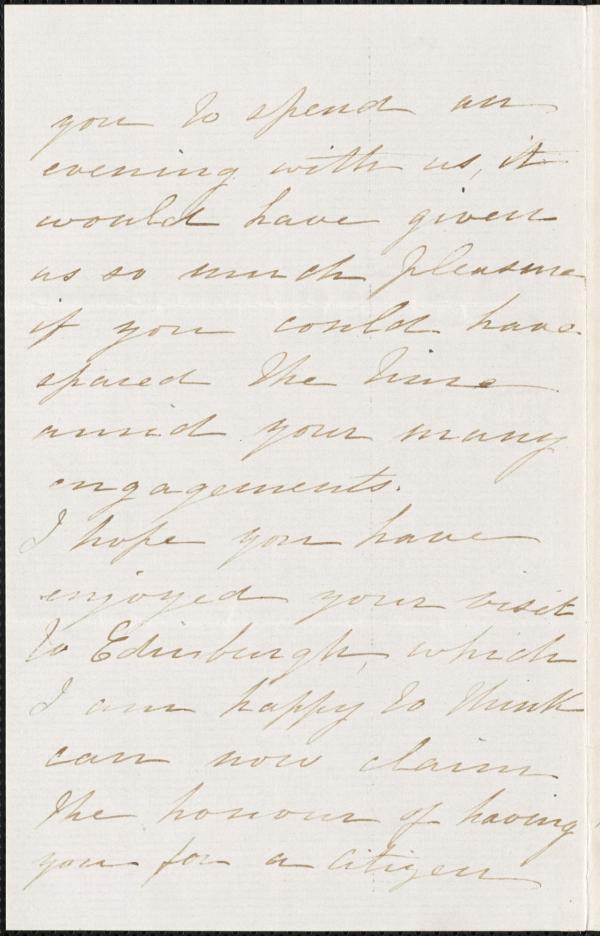 you to spend an
evening with us, it
would have given
us so much pleasure
if you could have
spared the time
amid your many
engagements.
I hope you have
enjoyed your visit
to Edinburgh, which
I am happy to think
can now claim
the honour of having
you for a citizen